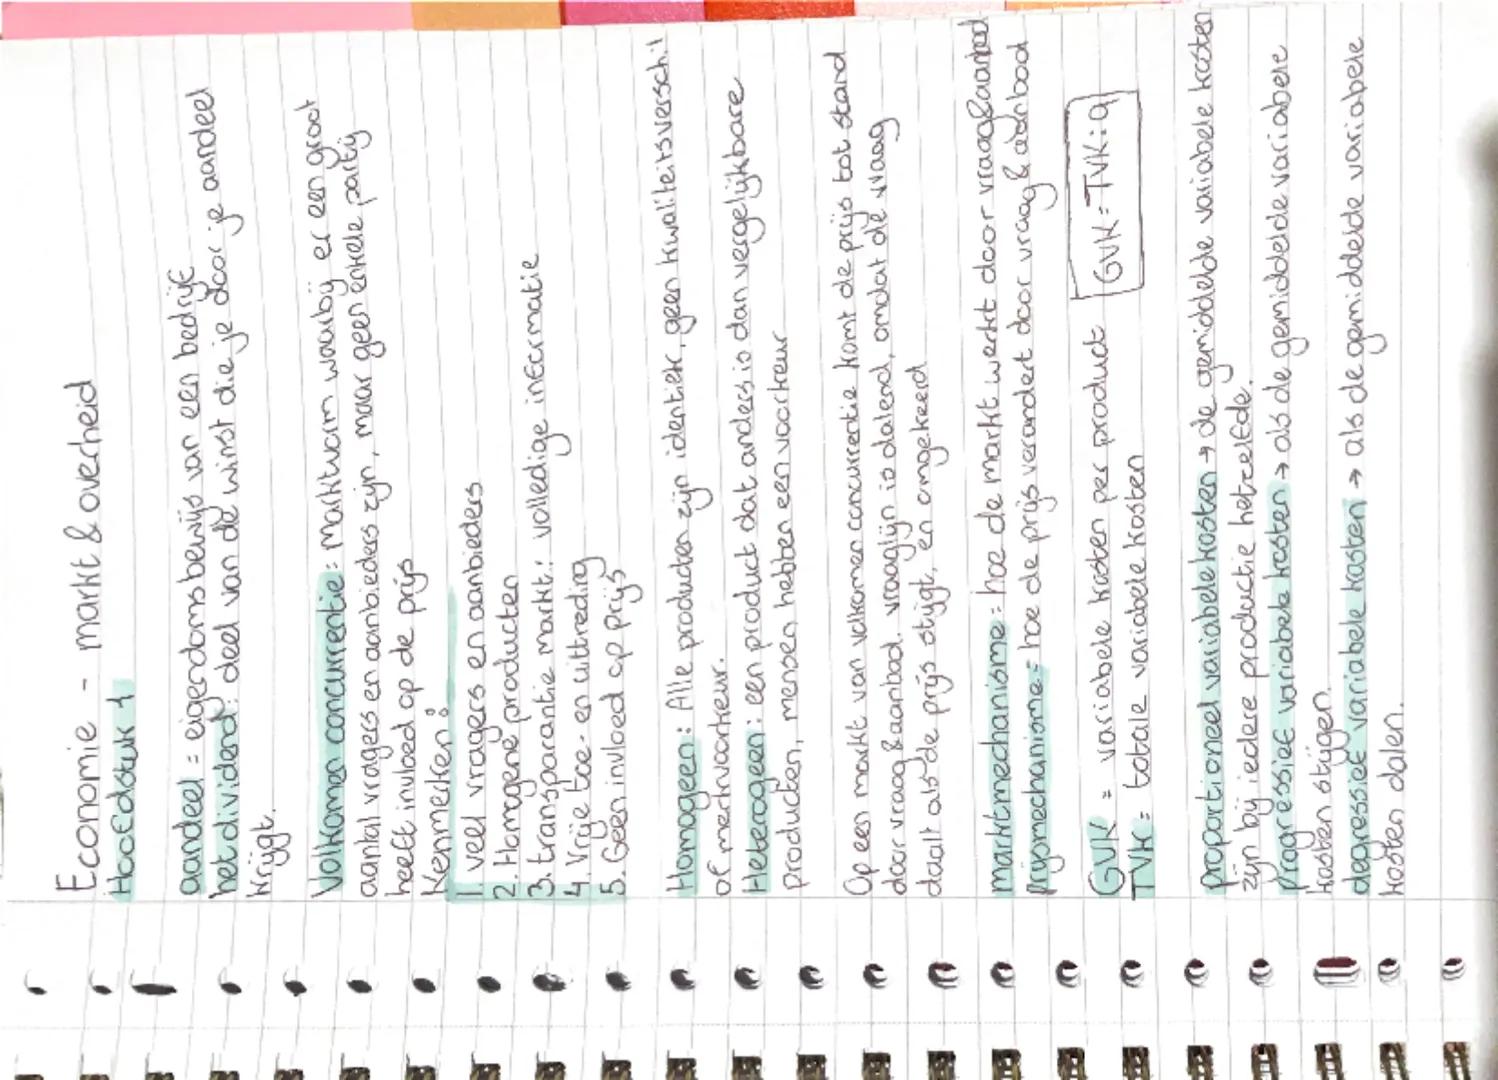 Economie - markt & overheid
Hoofdstuk 1
aandeel = eigendomsbewijs van een bedrijf
het dividend: deel van de winst die je door je aandeel
krijgt.
Volkomen concurrentie: marktvorm waarbij er een groot
aantal vragers en aanbieders zijn, maar geen enkele partij
heeft invloed op de prijs
Kenmerken:
1. veel vragers en aanbieders
2. Homogene producten
3. transparantie markt: volledige informatie
4. Vrije toe- en uittreding
5. Geen invloed op prijs
Homogeen: Alle producten zijn identiek, geen kwaliteitsverschil
of merkvoorkeur.
Heterogeen: een product dat anders is dan vergelijkbare
producten, mensen hebben een voorkeur
Op een markt van volkomen concurrentie komt de prijs tot stand
door vraag & aanbod. vraaglijn is dalend, omdat de vraag
daalt als de prijs stijgt, en omgekeerd
marktmechanisme: hoe de markt werkt door vraag & aanbod
prijsmechanisme: hoe de prijs verandert door vraag & aanbod
GVK = variabele kosten per product GVK = TVK : q
TVK = totale variabele kosten
proportioneel variabele kosten → de gemiddelde variabele kosten
zijn bij iedere productie hetzelfde.
progressief variabele kosten → als de gemiddelde variabele
kosten stijgen.
degressief variabele kosten → als de gemiddelde variabele
kosten dalen.